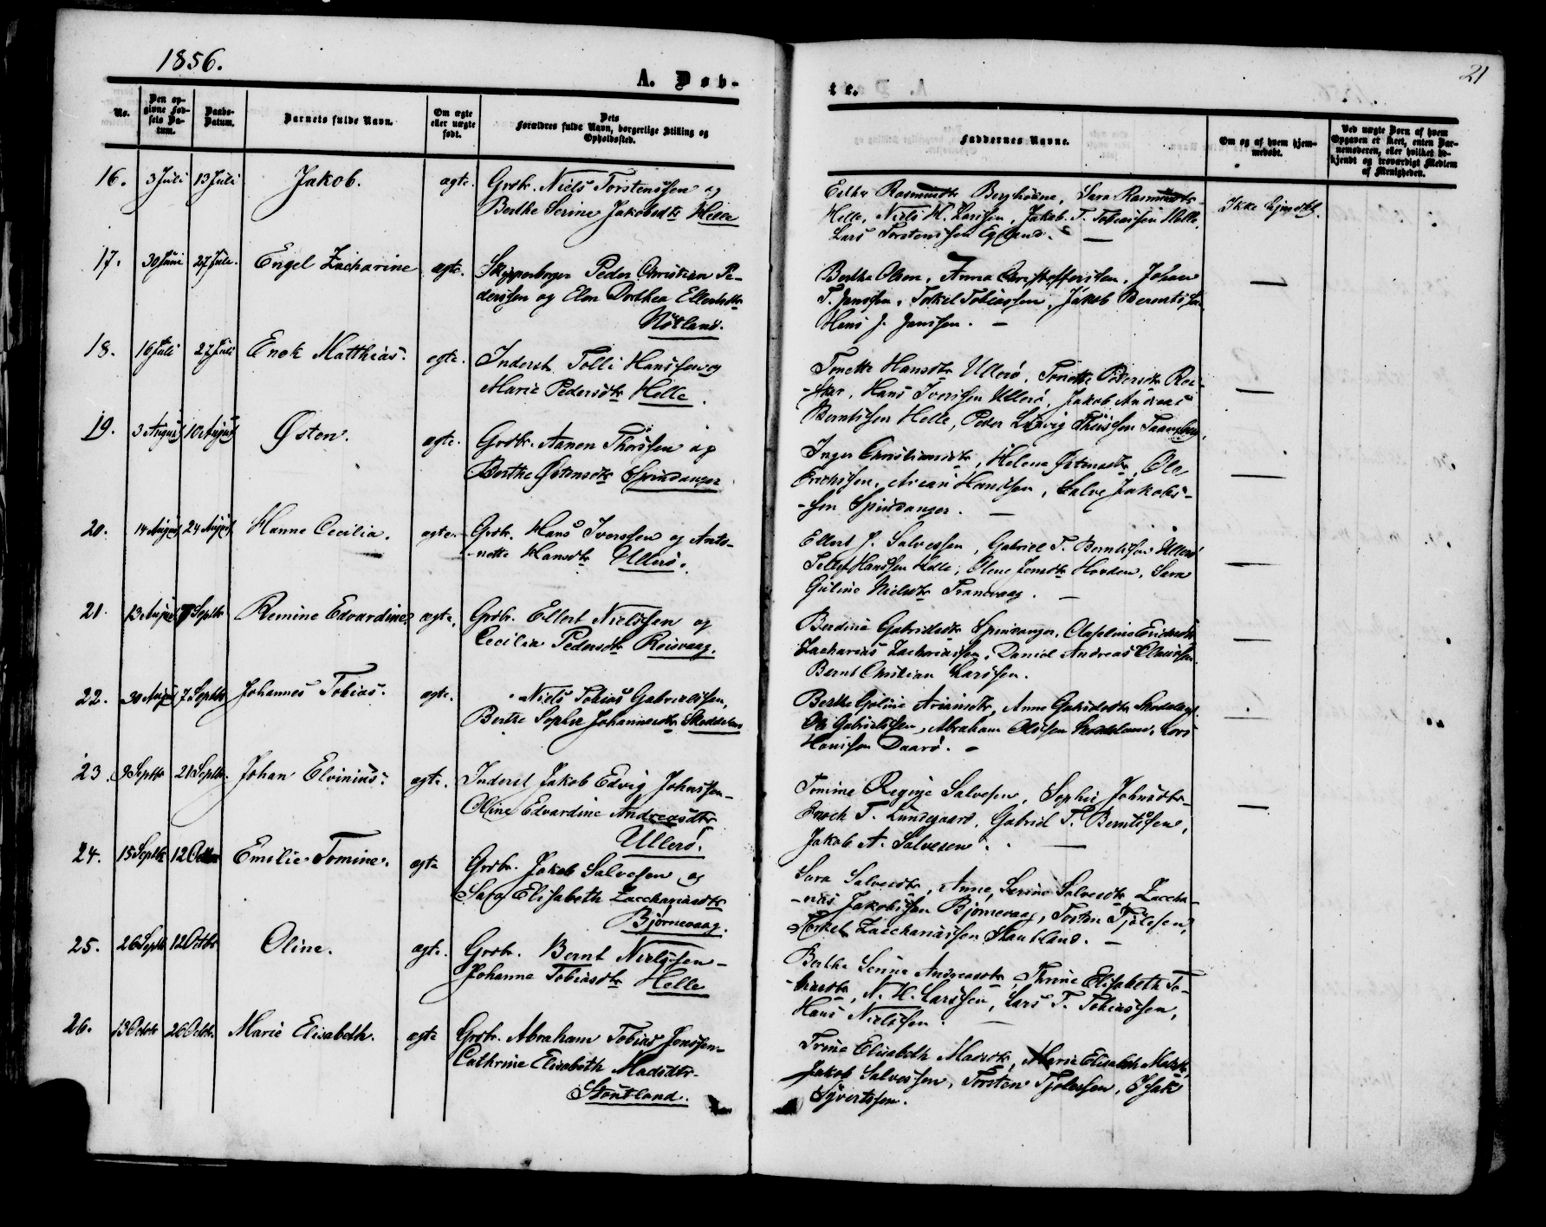 1856.
21
A. Døb-
te.
No.
Den op-
givne Fød-
sels Da-
tum.
Daabs-
Datum.
Barnets fulde Navn.
Om ægte
eller uægte
født.
Dets
Forældres fulde Navn, borgerlige Stilling og
Opholdssted.
Faddernes Navne.
Om og af hvem hjem-
medøbt.
Ved uægte Børn af hvem
Opgaven er skeet, enten Bar-
nemoderen, eller hvilket be-
kjendt og troværdigt Medlem
af Menigheden.
16. 3 Juli 13 Juli Jakob. ægte. Grdbr. Niels Torstensen og
Berthe Serine Jakobsdtr Helle
Rasmusdtr Sara Rasmusdtr
Helle, Niels H. Larssen, Jakob T. Tobiassen Helle,
Lars Torstenssen Egeland.
Ikke hjmdbt.
17. 30 Juni 27 Juli. Engel Zacharine ægte. Skipperborger Peder Christian Pe-
derssen og Elen Dorthea Ellertsdtr
Nøtland.
Berthe Olsen, Anna Christoffersen, Johan
T. Janssen, Torkel Tobiassen, Jakob Berentsen
Hans J. Janssen. —
18. 16 Juli 27 Juli Enok Matthias. ægte. Inderst Tolli Hanssen og
Marie Pedersdtr Helle.
Tonette Hansdtr Ullerø, Tonette Pedersdtr
Hans Iverssen Ullerø, Jakob Andreas
Berntssen Helle, Peder Ludvig Thiissen
19. 3 August 10 August Østen. ægte. Grdbr. Aanon Thorssen og
Berthe Østensdtr Spindanger
Inger Christiansdtr, Helene Østensdtr, Ole
Erikssen, Arian Hanssen, Salve Jakobs-
sen Spindanger. —
20. 14 August 24 August Hanne Cecilia. ægte. Grdbr. Hans Iverssen og Anto-
nette Hansdtr Ullerø.
Ellert J. Salvessen, Gabriel T. Berntssen Ullerø
Tellef Hanssen Helle, Olene Jensdtr Hordem, Sara
Guline Nielsdtr Tranevaag. —
21. 13 August 7 Septbr. Remine Edvardine. ægte. Grdbr. Ellert Nielssen og
Cecilia Pedersdtr Roisvaag.
Berdine Gabrielsdtr Spindanger, Olafeline Eriksdtr
Zacharias Zachariassen, Daniel Andreas Claussen
Bernt Christian Larssen.
22. 30 August 7 Septbr. Johannes Tobias. ægte. Niels Tobias Gabrielssen,
Berte Sophie Johannesdtr Skoddeland
Berthe Goline Ariansdtr, Anne Gabrielsdtr
Ole Gabrielssen, Abraham Olssen Lars
Hanssen Daarø. —
23. 9 Septbr 21 Septbr. Johan Elvinius. ægte. Inderst Jakob Edvig Johnssen —
Oline Edvardine Andreasdtr
Ullerø.
Tomine Regine Salvesen, Sophie Johnsdtr
Enoch T. Lundegaard, Gabriel T. Berntssen,
Jakob A. Salvesen. —
24. 15 Septbr 12 Octbr. Emilie Tomine. ægte Grdbr. Jakob Salvesen og
Sara Elisabeth Zacchariasdtr
Bjørnevaag.
Sara Salvesdtr, Anne Serine Salvesdtr, Zaccha-
rias Jakobssen Bjørnevaag, Torsten Tjølesen,
Torkel Zacchariassen Stautland. —
25. 26 Septbr 12 Octbr Oline. ægte. Grdbr. Bernt Nielssen —
Johanne Tobiasdtr Helle
Berthe Serine Andreasdtr, Thrine Elisabeth To-
biasdtr, N. H. Larssen, Lars T. Tobiassen,
Hans Nielssen. —
26. 13 Octbr 26 Octbr. Marie Elisabeth. ægte Grdbr. Abraham Tobias Jonssen —
Cathrine Elisabeth Madsdtr —
Stoutland.
Trine Elisabeth Madsdtr, Marie Elisabeth Madsdtr
Jakob Salvessen, Torsten Tjølessen, Isak
Syvertssen.